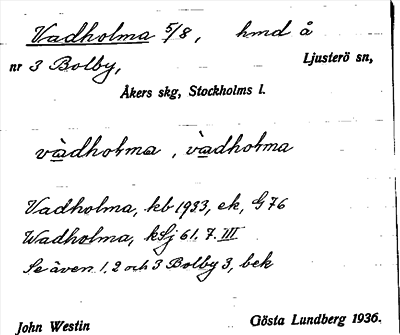 Vadholma 5/8, hmd å
nr 3 Bolby, Ljusterö sn,
Åkers skg, Stockholms l.
vàdholma, vàdholma
Vadholma, kb 1933, ek, G 76
Wadholma, kSj 61. 7. III
Se även 1, 2 och 3 Bolby 3, bek
John Westin Gösta Lundberg 1936.